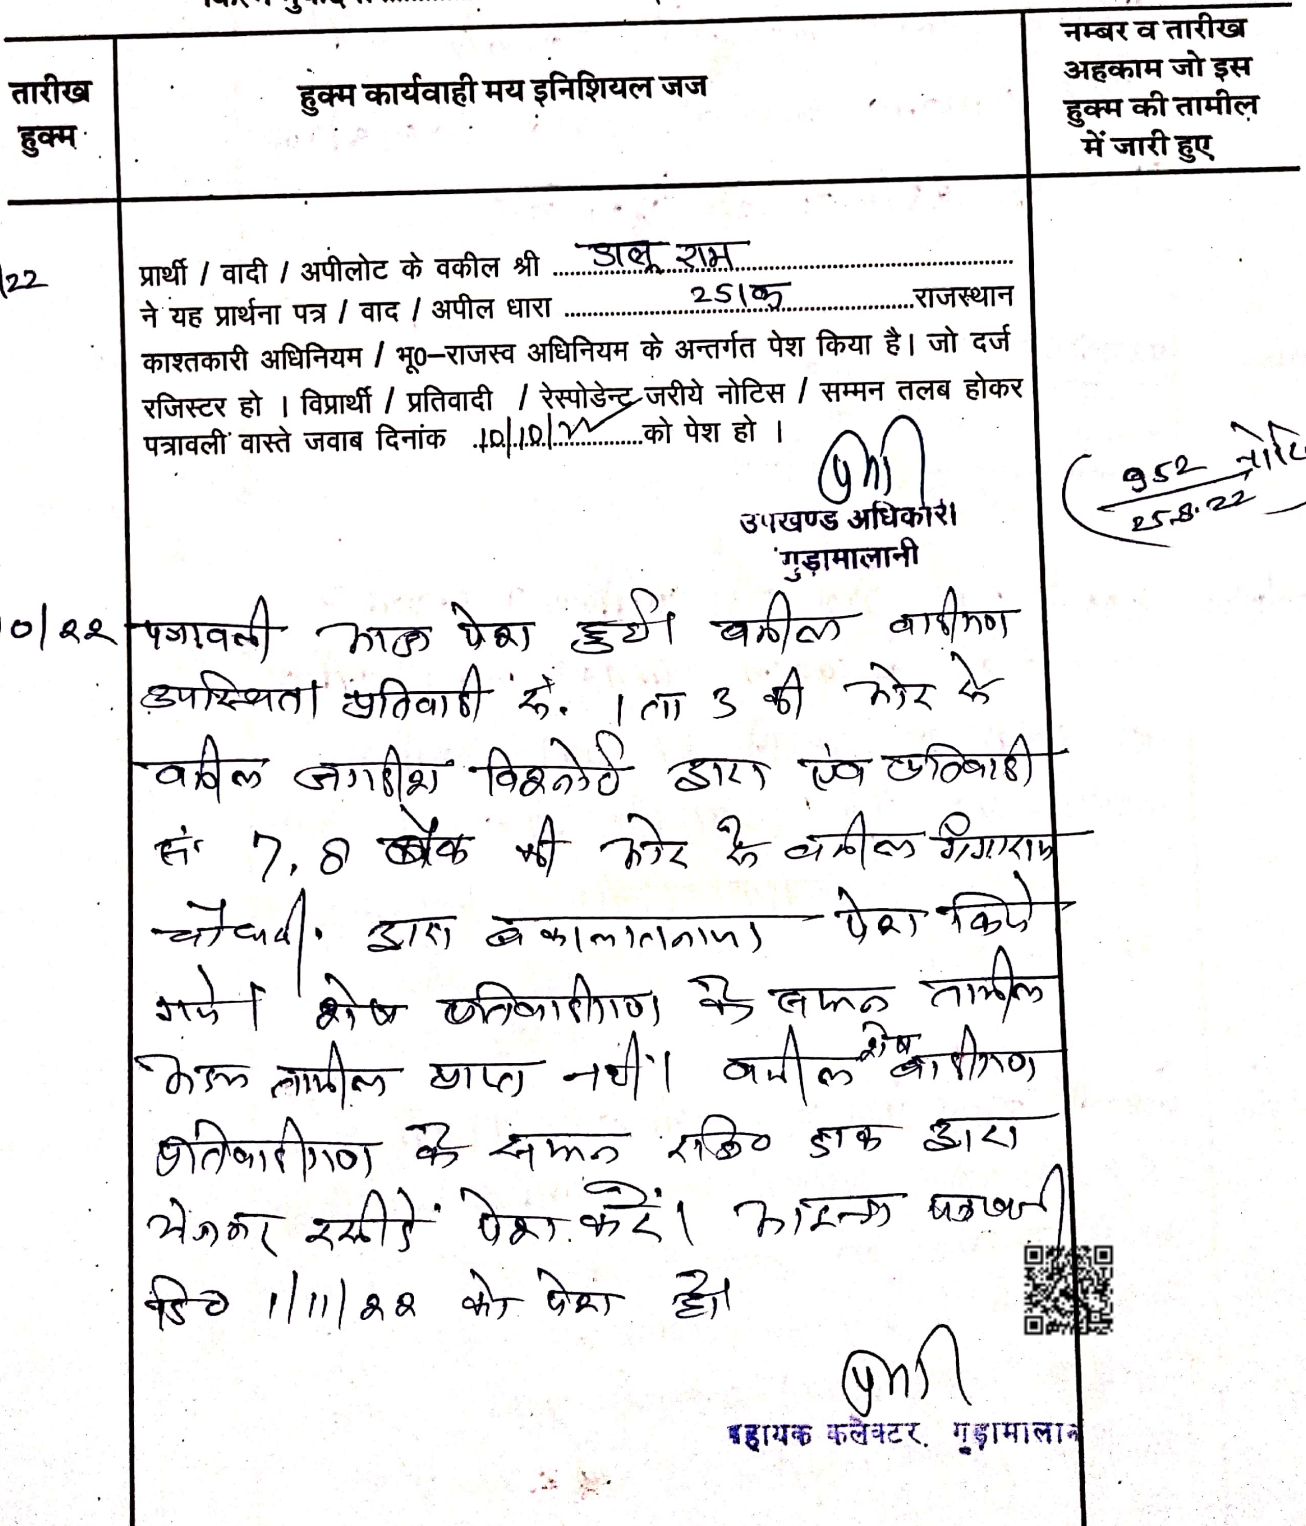 तारीख
हुक्म
हुक्म कार्यवाही मय इनिशियल जज
नम्बर व तारीख
अहकाम जो इस
हुक्म की तामील
में जारी हुए
/22
प्रार्थी / वादी / अपीलोट के वकील श्री डालू राम
ने यह प्रार्थना पत्र / वाद / अपील धारा 251क राजस्थान
काश्तकारी अधिनियम / भू0-राजस्व अधिनियम के अन्तर्गत पेश किया है। जो दर्ज
रजिस्टर हो । विप्रार्थी / प्रतिवादी / रेस्पोडेन्ट जरीये नोटिस / सम्मन तलब होकर
पत्रावली वास्ते जवाब दिनांक 10/10/22 को पेश हो ।
उपखण्ड अधिकारी
गुड़ामालानी
952
25.8.22
0/22 पत्रावली आज पेश हुयी। वकील वादीगण
उपस्थित। प्रतिवादी सं. 1 ता 3 की ओर से
वकील जगदीश विश्नोई द्वारा एंव प्रतिवादी
सं 7, 8 बैंक की ओर से वकील गंगाराम
चौधरी द्वारा वकालातनामा पेश किये
गये। शेष प्रतिवादीगण के समन तामील
अदम तामील प्राप्त नही। वकील वादीगण शेष
प्रतिवादीगण के समन रजि0 डाक द्वारा
भेजकर रसीदें पेश करें। आइन्दा पत्रावली
दि0 1/11/22 को पेश हो।
सहायक कलेक्टर, गुड़ामालान